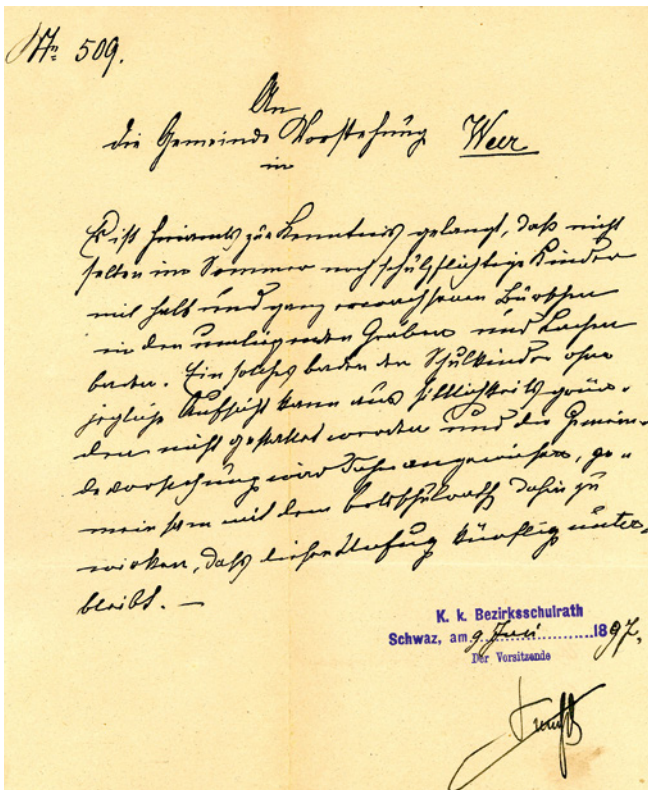 Nr. 509.
An
die Gemeinde Vorstehung Weer
in
Es ist hieramts zur Kenntnis gelangt, daß nicht
selten im Sommer noch schulpflichtige Kinder
mit halb und ganz erwachsenen Bürschen
in den umliegenden Gräben und Lachen
baden. Ein solches baden der Schulkinder ohne
jegliche Aufsicht kann aus Sittlichkeits grün-
den nicht gestattet werden und die Gemein-
de vorstehung wird daher angewiesen, ge-
mein sam mit dem Ortsschulrath dahin zu
wirken, daß dieser Unfug künftig unter-
bleibt. —
K. k. Bezirksschulrath
Schwaz, am 9 Juni 1897.
Der Vorsitzende